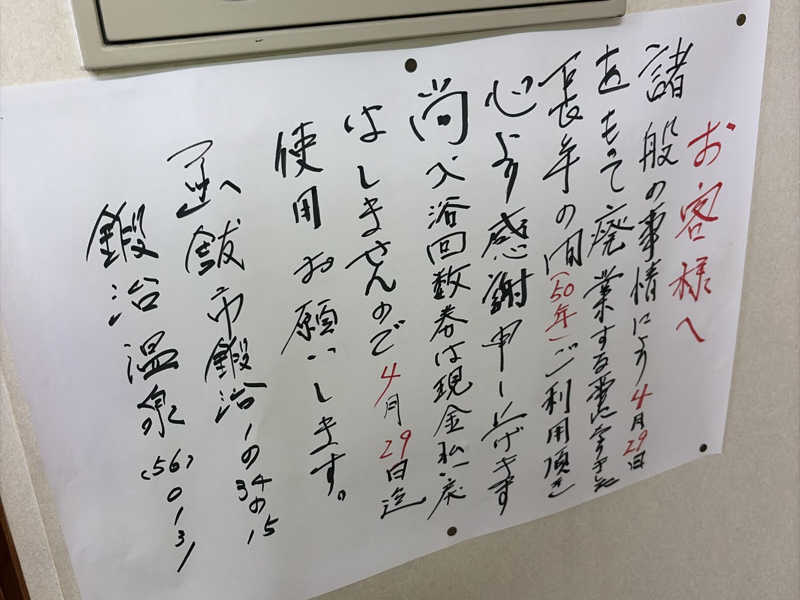 お客様へ
諸般の事情により4月29日
をもって廃業する事に
長年の間(50年)ご利用頂き
心より感謝申し上げます
尚入浴回数券は現金払い戻
はしませんので4月29日迄
使用お願いします。
函館市鍛治1の34の15
鍛治温泉(56)0131